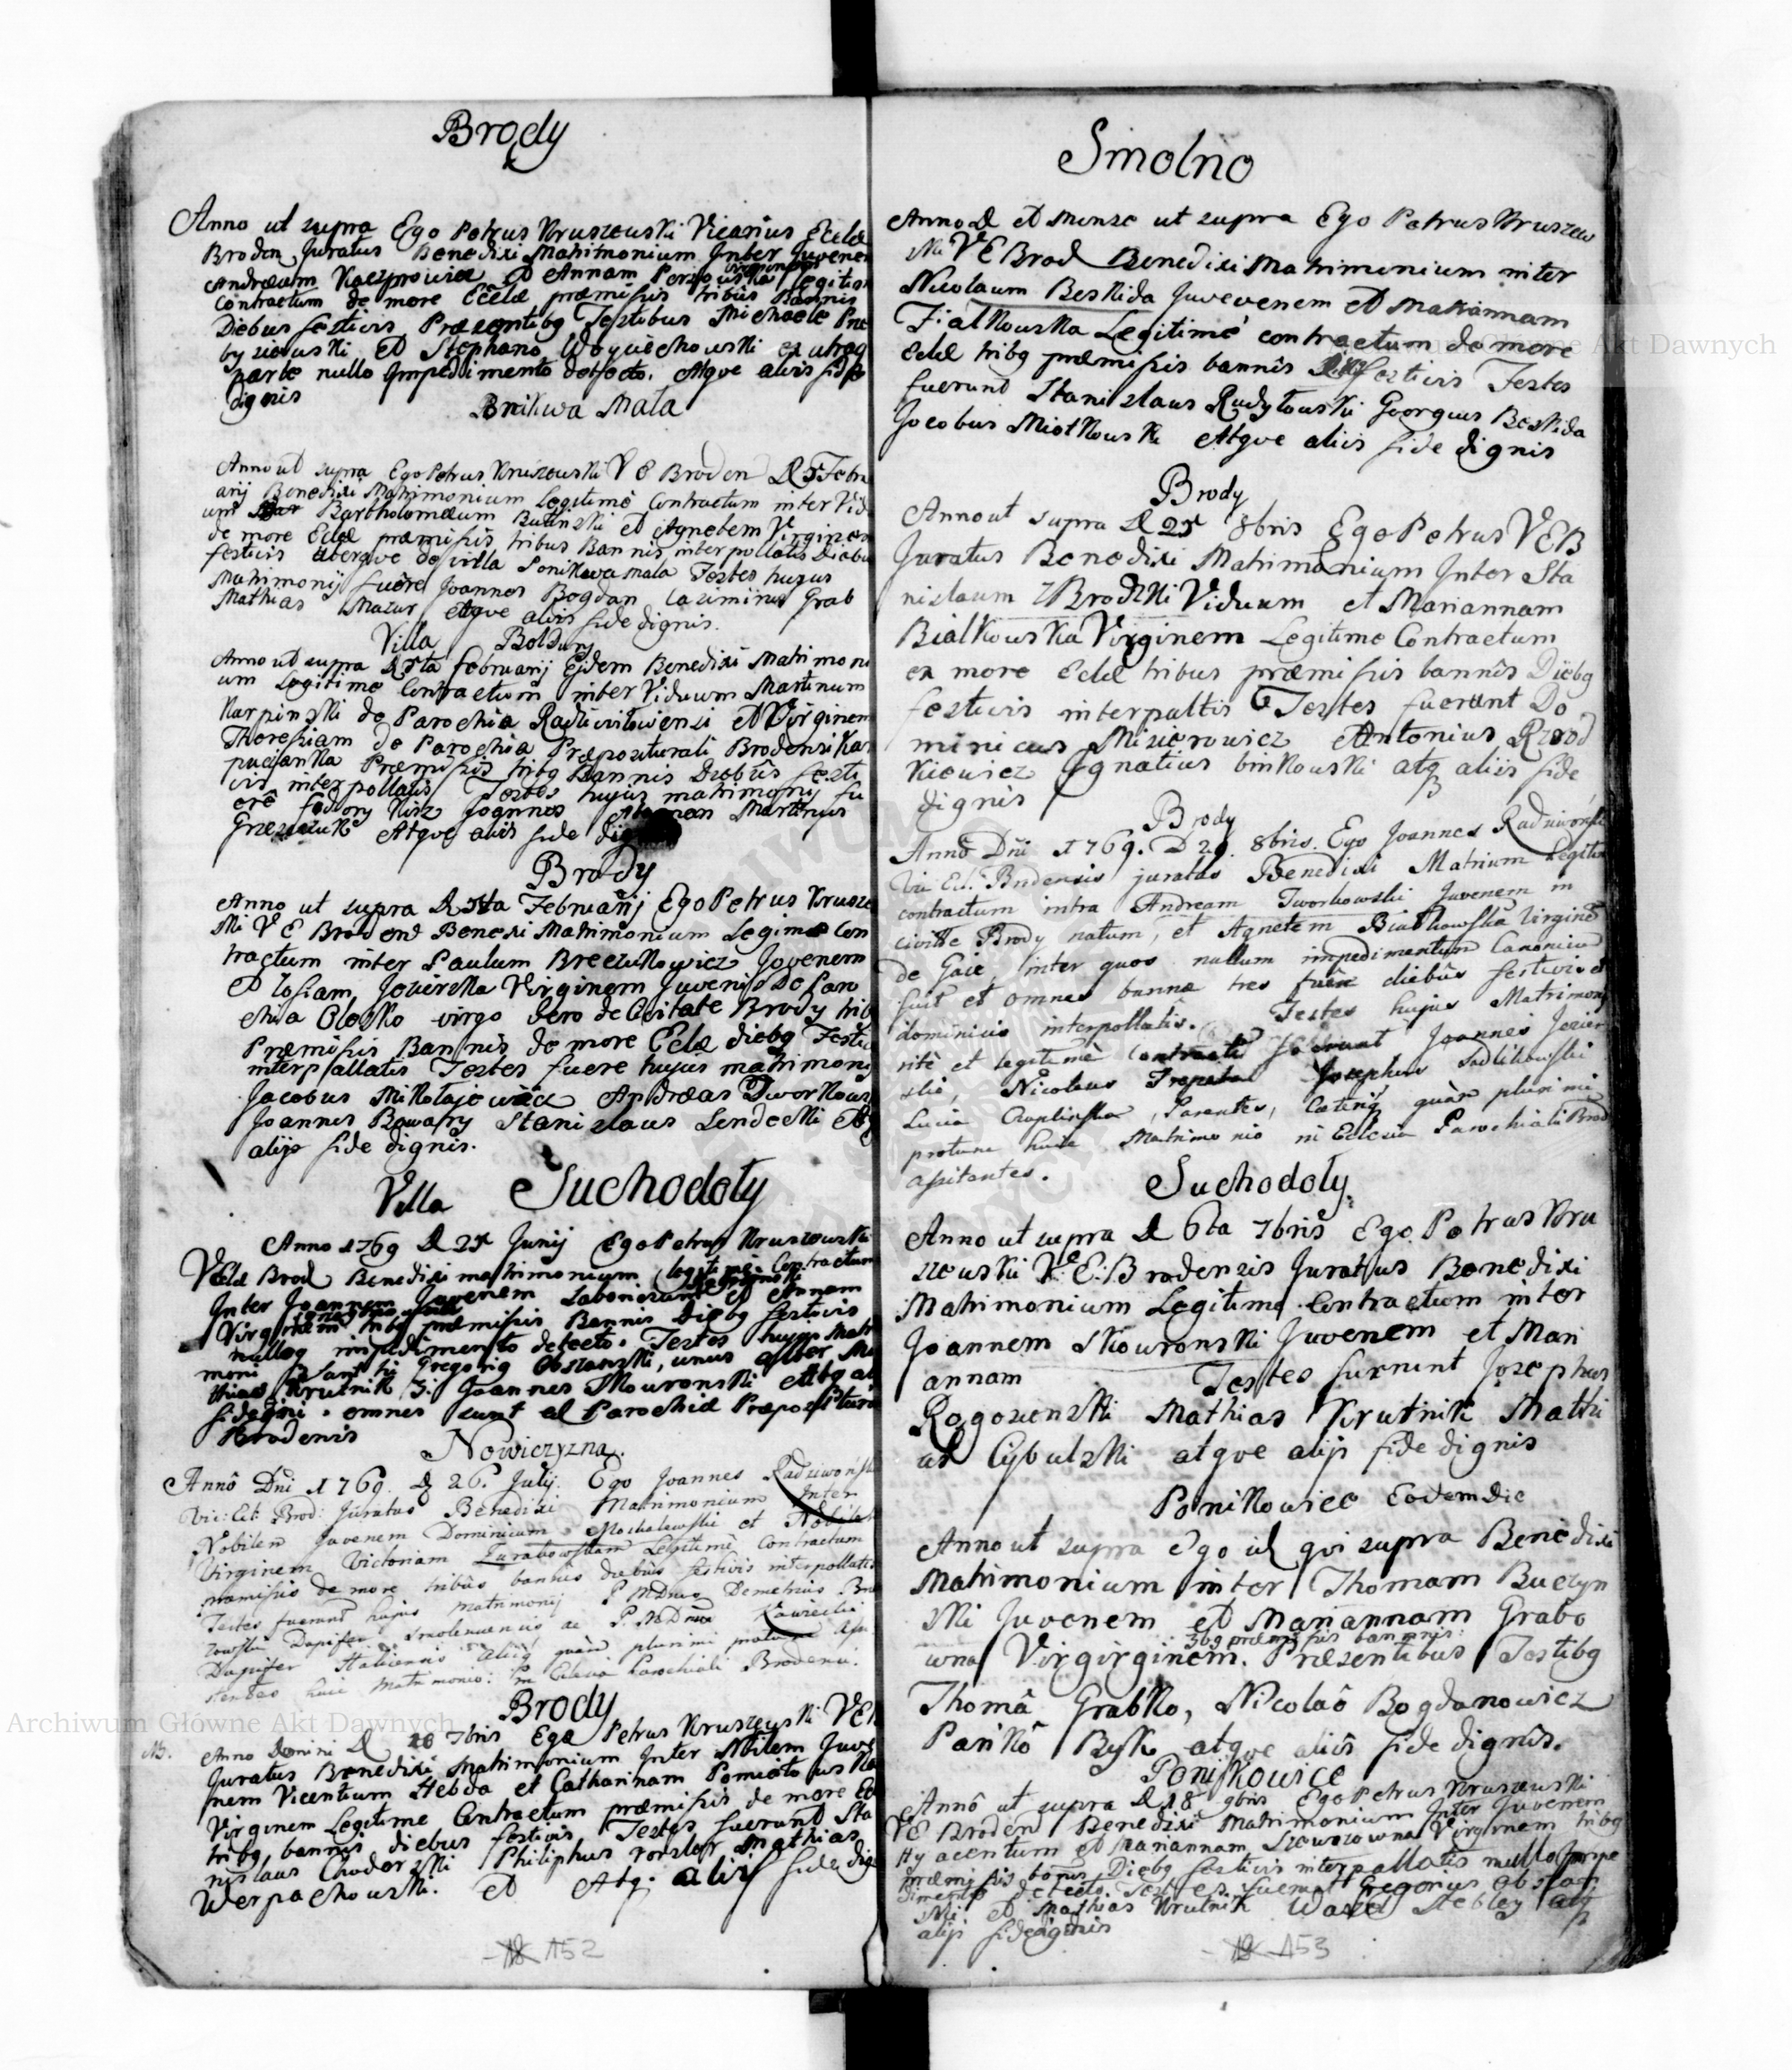 Brody
Anno ut supra Ego Petrus Kruszewski Vicarius Eccle
Broden Juratus Benedixi Matrimonium Inter Juvenem
Andraeam et Annam virginem Legitim
Contractum de more Eccle praemissis tribus Bannis
Diebus festivis Praesentibg Testibus Michaele Prz
byszewski et Stephano Woyciechowski ex utraq
parte nullo Impedimento detecto. Atqve aliis fide
dignis
Bnikwa Mala
Anno ut supra Ego Petrus Kruszewski V E Broden D 5 Febru
arij Benedixi Matrimonium Legitime Contractum inter Vidu
um Bartholomaeum Butinski et Agnetem Virginem
de more Eccle praemissis tribus Bannis interpollatis Diebus
festivis uterqve de villa Ponikowa mala Testes hujus
Matrimonij fuere Joannes Bogdan Casimirus Grab
Mathias Mazur Atqve aliis fide dignis.
Villa Boldury
Anno ut supra D 5ta Februarij Eidem Benedixi Matrimoni
um Legitime Contractum inter Viduum Martinum
Karpinski de Parochia Radziwilowensi et Virginem
Theresiam de Parochia Praepositurali Brodensi Kar
pucianka Praemissis tribg Bannis Diebus festi
vis interpollatis Testes hujus matrimonij fu
ere fedory Kisz Joannes Martinus
Atqve aliis fide
Brody
Anno ut supra D 5ta Februarij Ego Petrus Krusze
ski V E Brodens Benexi Matrimonium Legime Con
tractum inter Paulum Breczukowicz Jovenem
et Zofiam Jozierska Virginem Juvenis De Paro
chia Olesko virgo vero de Civitate Brody trib
Praemissis Bannis de more Eccle diebg Festi
interpallatis Testes fuere hujus matrimony
Jacobus Mikolajewicz Andraeas Dworkows
Joannes Rowasry Stanislaus Lendecki
alijs fide dignis.
Villa Suchodoly
Anno 1769 D 25 Junij Ego Petrus Kruszewski
VEcle Brod Benedixi matrimonium legitime Contractum
Inter Joannem Juvenem Laboriosum et Annam
Virginem tribg praemissis Bannis Diebg festivis
nullog impedimento detecto. Testes hujus Matri
moni sunt hi Gregorig Obszanski, unus alter Ma
thias Krutnik 3. Joannes Skouronski
fidegni. omnes sunt ad Parochia Praepositura
Brodensis
Nowiczyzna.
Anno Dni 1769. D 26. Julij. Ego Joannes Radziwonski
Vic: Ecl: Brod: Juratus Benedixi Matrimonium Inter
Nobilem Juvenem Dominicum Mochalewski et Nobilem
Virginem Victoriam Zurakowskam Legitime Contractum
praemissis de more tribus bannis diebus festivis interpollatis
Testes fuerunt hujus Matrimonij P. MDnus Demetrius
Dapifer Smolenensis ac P. MDnus Kawiecki
Dapifer Haliensis aliiq quam plurimi
stentes huic Matrimonio. In Eclesia Parochiali Brodensi.
Brody
NB. Anno Domini D 18 7bris Ego Petrus Kruszewski VE
Juratus Benedixi Matrimonium Inter Nbilem Juve
nem Vicentium Hebda et Catharinam Pomiatowska
Virginem Legitime Contractum praemissis de more Ec
tribg bannis diebus festivis Testes fuerunt Sta
nislaus Chodorski Philiphus Mathias
Werpachowski. et Atq. aliis fide dig
152
Smolno
Anno D et Mense ut supra Ego Petrus Kruszew
ski VE Brod Benedixi Matrimonium inter
Nicolaum Beskida Juvevenem et Mariannam
Fialkouska Legitime contractum de more
Eclae tribg praemissis bannis festivis Testes
fuerunt Stanislaus Rudylouski Georgius Beskida
Jocobus Miotkouski Atqve aliis fide dignis
Brody
Anno ut supra D 25 8bris Ego Petrus VEB
Juratus Benedixi Matrimonium Inter Sta
nislaum Brodzki Viduum et Mariannam
Bialkouska Virginem Legitime Contractum
ex more Eclae tribus praemissis bannis Diebg
festivis interpaltis Testes fuerunt Do
minicus Misierowicz Antonius Rzod
kiewicz Ignatius binkouski atq aliis fide
dignis
Brody
Anno Dni 1769. D 29. 8bris. Ego Joannes Radziwonski
Vic Ecl: Brodensis juratus Benedixi Matrium Legitim
contractum intra Andream Dworkowski Juvenem in
civitte Brody natum, et Agnetem Bialkowska Virgine
de Gaie, inter quos nullum impedimentum Canonicu
fuit et omnes bannae tres fuere diebus festivis et
dominicis interpollatis. Testes hujus Matrimony
rite et legitime contracti fuerunt Joannes Jezier
ski, Nicolaus Josephus Sadlikowski
Lucia Czaplinska, Parentes, Caeteriq quam plurimi
huic Matrimonio in Eclesia Parochiali Brod
assistentes.
Suchodoly.
Anno ut supra D 6ta 7bris Ego Petrus Kru
szeuski V.E. Brodensis Juratus Benedixi
Matrimonium Legitime Contractum inter
Joannem Skouronski Juvenem et Mari
annam Testes fuerunt Josephus
Rogozenski Mathias Krutnik Mathi
as Cybulski atqve alijs fide dignis
Ponikowice Eodem die
Anno ut supra Ego id qvi supra Benedixi
Matrimonium inter Thomam Buczyn
ski Juvenem et Mariannam Grabo
wna Virgirginem. 3bg praemissis bannis. Praesentibus Testibg
Thomâ Grabko, Nicolaô Bogdanowicz
Pańkô Rysk atqve aliis fide dignis.
Ponikowice
Anno ut supra D 18 9bris Ego Petrus Kruszewski
VE Broden Benedixi Matrimonium Inter Juvenem
Hyacentum et Mariannam Szewczowna Virginem tribg
praemissis bannis Diebg festivis interpallatis nullo Impe
dimento detecto. Testes fuerunt Gregorius Obszan
ski et Mathias Krutnik Wasel Stebley atq
alijs fidedignis
153
Archiwum Główne Akt Dawnych